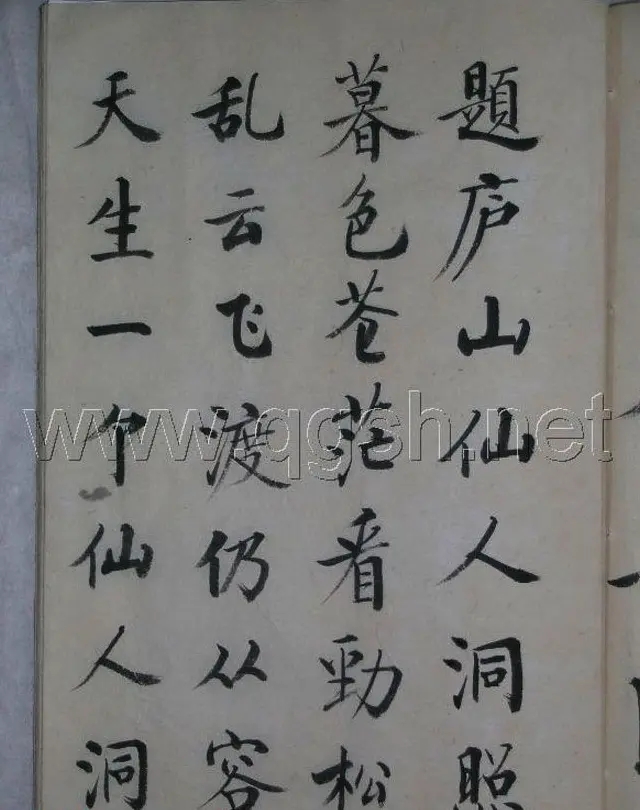 題庐山仙人洞照
暮色苍茫看勁松
乱云飞渡仍从容
天生一个仙人洞
www.qgsh.net